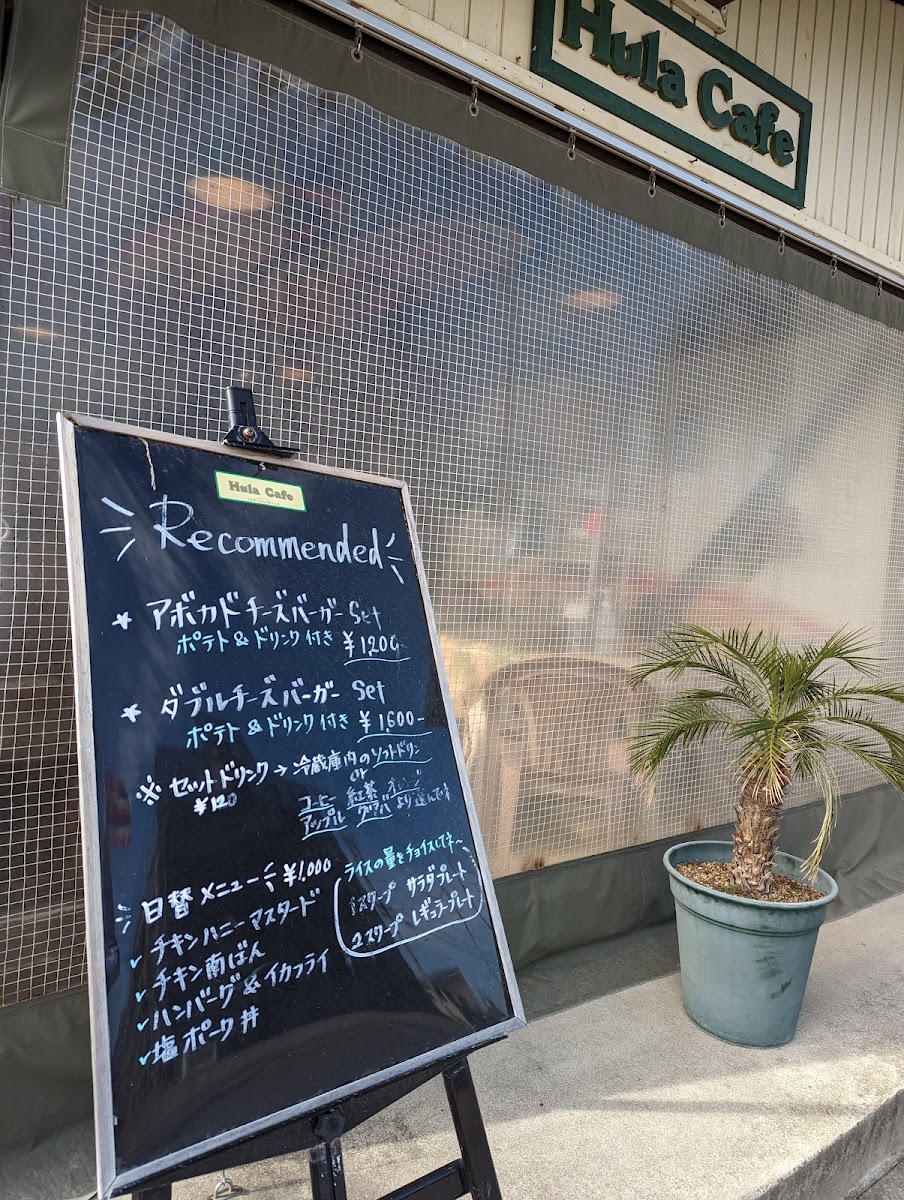 Hula Cafe
Hula Cafe
Recommended
* アボカドチーズバーガー Set
ポテト&ドリンク付き ¥1,200
* ダブルチーズバーガー Set
ポテト&ドリンク付き ¥1,600-
※ セットドリンク→冷蔵庫内のソフトドリン
¥120
or
コーヒー 紅茶 オレンジ
アップル グァバ より選んで
日替メニュー ¥1,000
✓ チキンハニーマスタード
✓ チキン南ばん
✓ ハンバーグ&イカフライ
✓ 塩ポーク丼
ライスの量をチョイスしてネ〜
1スクープ サラダプレート
2スクープ レギュラープレート